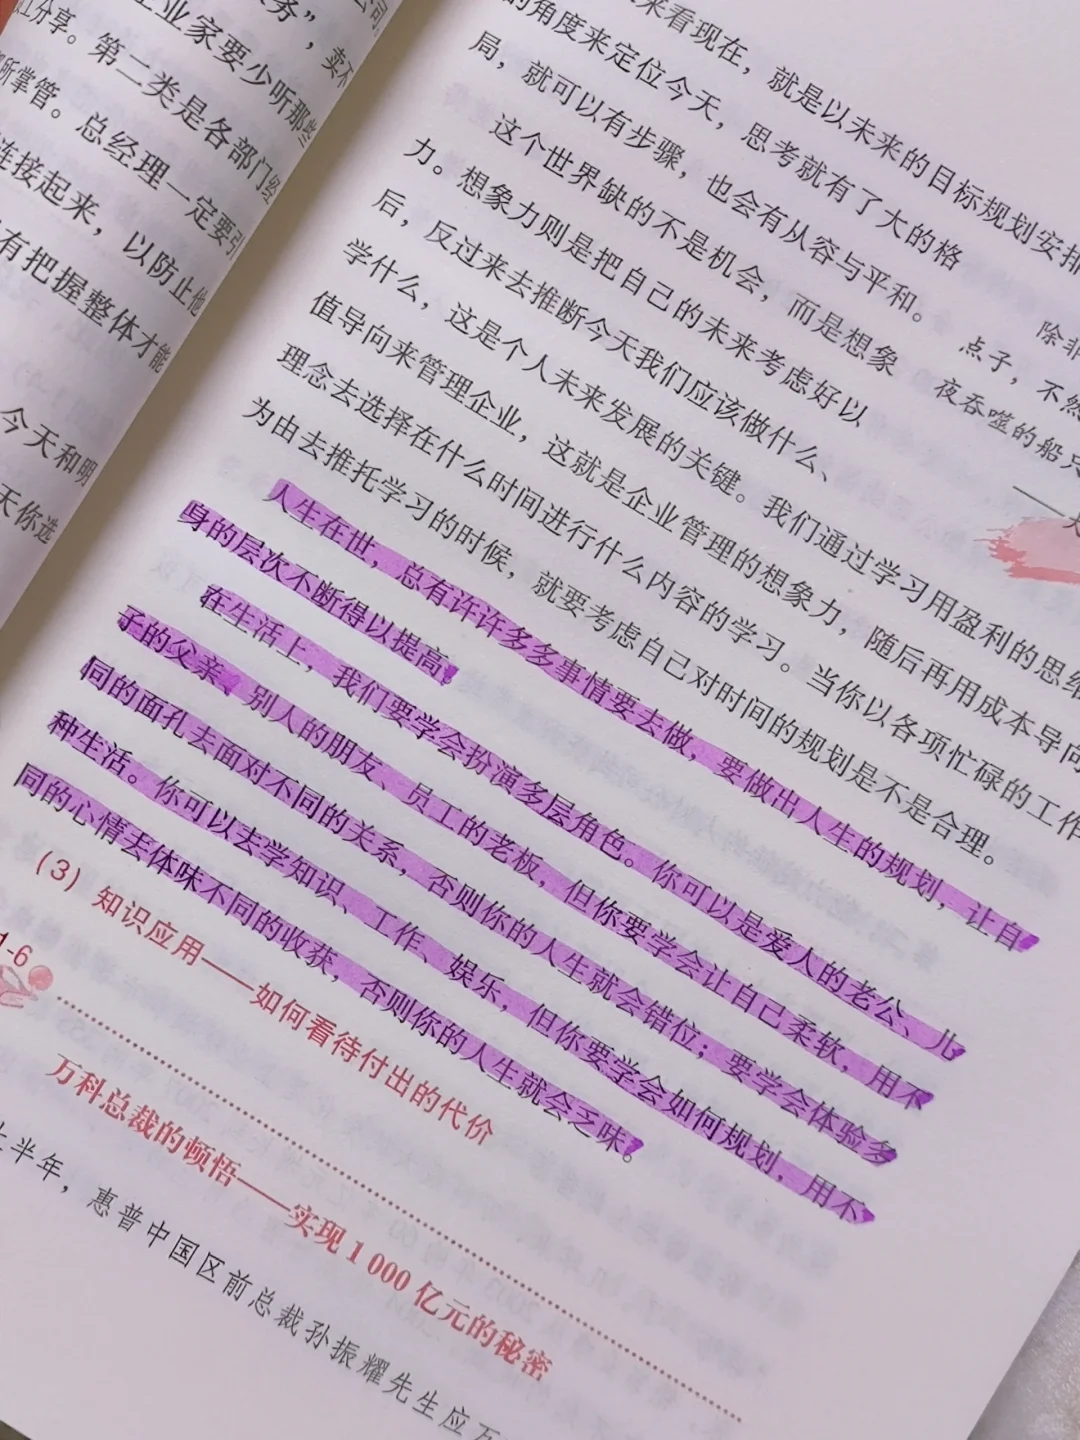 务”，
企业家要少听那些
分享。第二类是各部门经
所掌管。总经理一定要引
连接起来，以防止他
有把握整体才能
今天和明
天你选
来看现在，就是以未来的目标规划安排
的角度来定位今天，思考就有了大的格
局，就可以有步骤，也会有从容与平和。
这个世界缺的不是机会，而是想象
力。想象力则是把自己的未来考虑好以
后，反过来去推断今天我们应该做什么、
学什么，这是个人未来发展的关键。我们通过学习用盈利的思维
值导向来管理企业，这就是企业管理的想象力，随后再用成本导向
理念去选择在什么时间进行什么内容的学习。当你以各项忙碌的工作
为由去推托学习的时候，就要考虑自己对时间的规划是不是合理。
除非
点子，不然
夜吞噬的船只
人生在世，总有许许多多事情要去做，要做出人生的规划，让自
身的层次不断得以提高。
在生活上，我们要学会扮演多层角色。你可以是爱人的老公、儿
子的父亲、别人的朋友、员工的老板，但你要学会让自己柔软，用不
同的面孔去面对不同的关系，否则你的人生就会错位；要学会体验多
种生活。你可以去学知识、工作、娱乐，但你要学会如何规划，用不
同的心情去体味不同的收获，否则你的人生就会乏味。
（3）知识应用——如何看待付出的代价
1-6
万科总裁的顿悟——实现1 000亿元的秘密
上半年，惠普中国区前总裁孙振耀先生应万